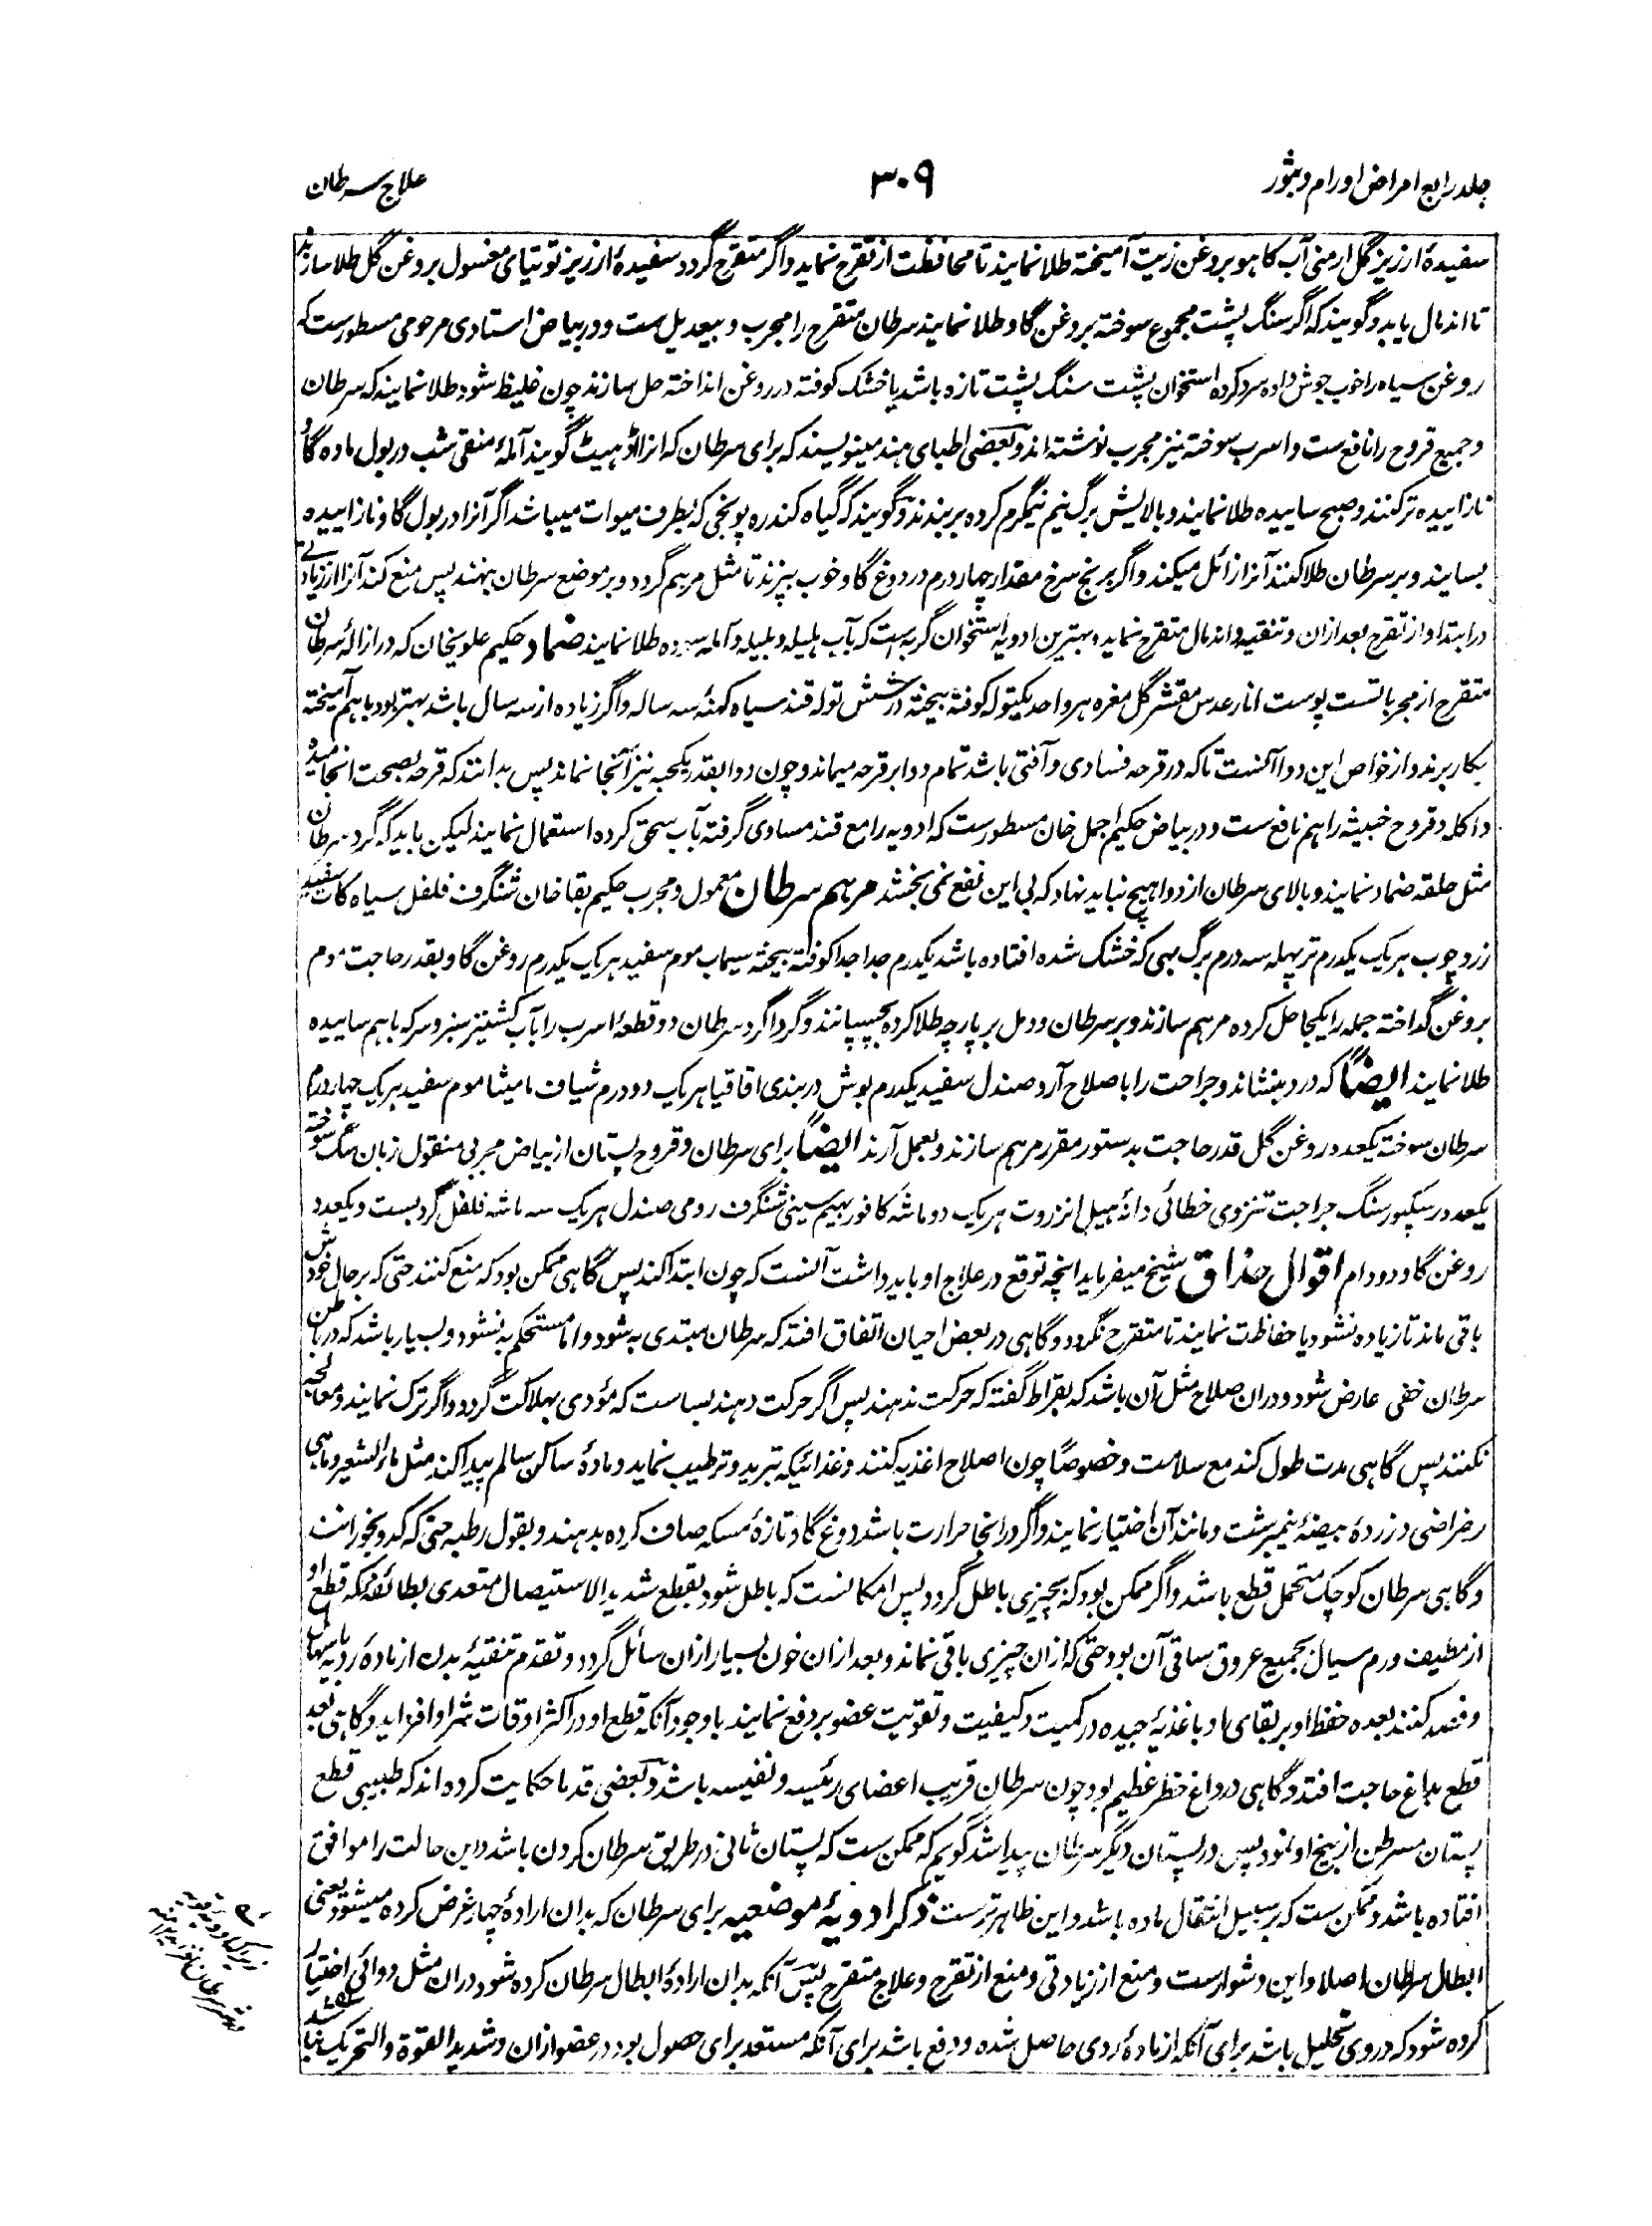 جلد رابع امراض اورام و بثور
۳۰۹
علاج سرطان
سفیدۂ ارزیز گل ارمنی آب کاهو بروغن زیت آمیخته طلا نمایند تا محافظت از تقرح نماید و اگر متقرح گردد سفیدۂ ارزیز توتیای مغسول بروغن گل طلا سازند
تا اندمال یابد و گویند که اگر سنگ پشت مجموع سوخته بروغن گاو طلا نمایند سرطان متقرح را مجرب و بیعدیل ست و در بیاض استادی مرحومی مسطورست که
روغن سیاه را خوب جوش داده سرد کرده استخوان پشت سنگ پشت تازه باشد یا خشک کوفته در روغن انداخته حل سازند چون غلیظ شود طلا نمایند که سرطان
و جمیع قروح را نافع ست و اسرب سوخته نیز مجرب نوشته اند و بعضی اطبای هند مینویسند که برای سرطان که انرا اڈهیٹ گویند آملۂ منقی شب در بول ماده گاو
نازاییده تر کنند و صبح ساییده طلا نمایند و بالایش برگ نیم نیگرم کرده بربندند و گویند که گیاه کندره پونجی که بطرف میوات میباشد اگر آنرا در بول گاو نازاییده
بسایند و بر سرطان طلا کنند آنرا زائل میکند و اگر برنج سرخ مقدار چهار درم در دوغ گاو خوب بپزند تا مثل مرهم گردد و بر موضع سرطان بنهند پس منع کند آنرا از زیادتی
در ابتدا و از تقرح بعد ازان و تنقیه و اندمال متقرح نماید و بهترین ادویه استخوان گربه است که بآب هلیله و بلیله و آمله سوده طلا نمایند ضماد حکیم علویخان که در ازالۂ سرطان
متقرح از مجرباتست پوست انار عدس مقشر گل مغره هر واحد یکتوله کوفته بیخته در شش توله قند سیاه کهنۂ سه ساله و اگر زیاده از سه سال باشد بهتر بود باهم آمیخته
بکار برند و از خواص این دوا آنست تا که در قرحه فسادی و آفتی باشد تمام دوا بر قرحه میماند و چون دوا بقدر یکحبه نیز آنجا نماند پس بدانند که قرحه بصحت انجامید
و اکله و قروح خبیثه را هم نافع ست و در بیاض حکیم اجمل خان مسطورست که ادویه را مع قند مساوی گرفته بآب سحق کرده استعمال نمایند لیکن باید که گرد سرطان
مثل حلقه ضماد نمایند و بالای سرطان از دوا هیچ نباید نهاد که بی این نفع نمی بخشد مرهم سرطان معمول و مجرب حکیم بقا خان شنگرف فلفل سیاه کات سفید
زرد چوب هر یک یکدرم تربهله سه درم برگ مهی که خشک شده افتاده باشد یکدرم جدا جدا کوفته بیخته سیماب موم سفید هر یک یکدرم روغن گاو بقدر حاجت موم
بروغن گداخته جمله را یکجا حل کرده مرهم سازند و بر سرطان و دمل بر پارچه طلا کرده بچسپانند و گرداگرد سرطان دو قطعۂ اسرب را بآب کشنیز سبز و سرکه باهم ساییده
طلا نمایند ایضاً که درد بنشاند و جراحت را باصلاح آرد صندل سفید یکدرم بوش دربندی اقاقیا هر یک دو درم شیاف مامیثا موم سفید هر یک چهار درم
سرطان سوخته یکعدد روغن گل قدر حاجت بدستور مقرر مرهم سازند و بعمل آرند ایضاً برای سرطان و قروح پستان از بیاض مجربی منقول زبان سگ سوخته
یکعدد رسکپور سنگ جراحت تنزوی خطائی دانۂ هیل انزروت هر یک دو ماشه کافور بهیم سینی شنگرف رومی صندل هر یک سه ماشه فلفل گرد بست و یکعدد
روغن گاو دو دام اقوال حذاق شیخ میفرماید انچه توقع در علاج او باید داشت آنست که چون ابتدا کند پس گاهی ممکن بود که منع کنند حتی که بر حال خودش
باقی ماند تا زیاده نشود یا حفاظت نمایند تا متقرح نگردد و گاهی در بعض احیان اتفاق افتد که سرطان مبتدی به شود و اما مستحکم به نشود و بسیار باشد که در باطن
سرطان خفی عارض شود و دران صلاح مثل آن باشد که بقراط گفته که حرکت ندهند پس اگر حرکت دهند بسا ست که مؤدی بهلاکت گردد و اگر ترک نمایند و معالجه
نکنند پس گاهی مدت طول کند مع سلامت و خصوصاً چون اصلاح اغذیه کنند و غذائیکه تبرید و ترطیب نماید و مادۂ ساکن سالم پیدا کند مثل ماء الشعیر و ماهی
رضراضی و زردۂ بیضۂ نیمبرشت و مانند آن اختیار نمایند و اگر در انجا حرارت باشد دوغ گاو تازۂ مسکه صاف کرده بدهند و بقول رطبه حتی که کدو بخورانند
و گاهی سرطان کوچک متحمل قطع باشد و اگر ممکن بود که بچیزی باطل گردد پس امکانست که باطل شود بقطع شدید الاستیصال متعدی بطائفه که قطع او
از مطیف ورم سیال بجمیع عروق ساقی آن بود حتی که ازان چیزی باقی نماند و بعد ازان خون بسیار ازان سائل گردد و تقدم تنقیۂ بدن از مادۂ ردیه باسهال
و فصد کنند بعده حفظ او بر بقای او باغذیۂ جیده در کمیت و کیفیت و تقویت عضو بر دفع نمایند با وجود آنکه قطع او در اکثر اوقات شر او افزاید و گاهی بعد
قطع بداغ حاجت افتد و گاهی در داغ خطر عظیم بود چون سرطان قریب اعضای رئیسه و نفیسه باشد و بعضی قدما حکایت کرده اند که طبیبی قطع
پستان مسرطن از بیخ او نمود پس در پستان دیگر سرطان پیدا شد گویم که ممکن ست که پستان ثانی در طریق سرطان کردن باشد و این حالت را موافق
افتاده باشد و ممکن ست که بر سبیل انتقال ماده باشد و این ظاهرترست ذکر ادویۂ موضعیه برای سرطان که بدان ارادۂ چهار غرض کرده میشود یعنی
ابطال سرطان اصلا و این دشوارست و منع از زیادتی و منع از تقرح و علاج متقرح پس آنکه بدان ارادۂ ابطال سرطان کرده شود دران مثل دوائی اختیار
کرده شود که در وی تحلیل باشد برای آنکه از مادۂ ردی حاصل شده و دفع باشد برای آنکه مستعد برای حصول بود در عضو ازان و شدید القوة و التحریک نباشد